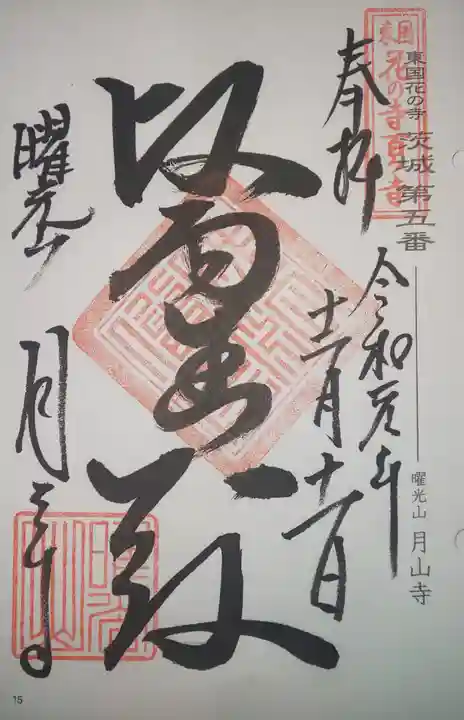 東国
花の寺百ヶ寺
東国花の寺 茨城 第五番
曜光山 月山寺
奉拝
令和元年
十一月十一日
曜光山
月山寺
15